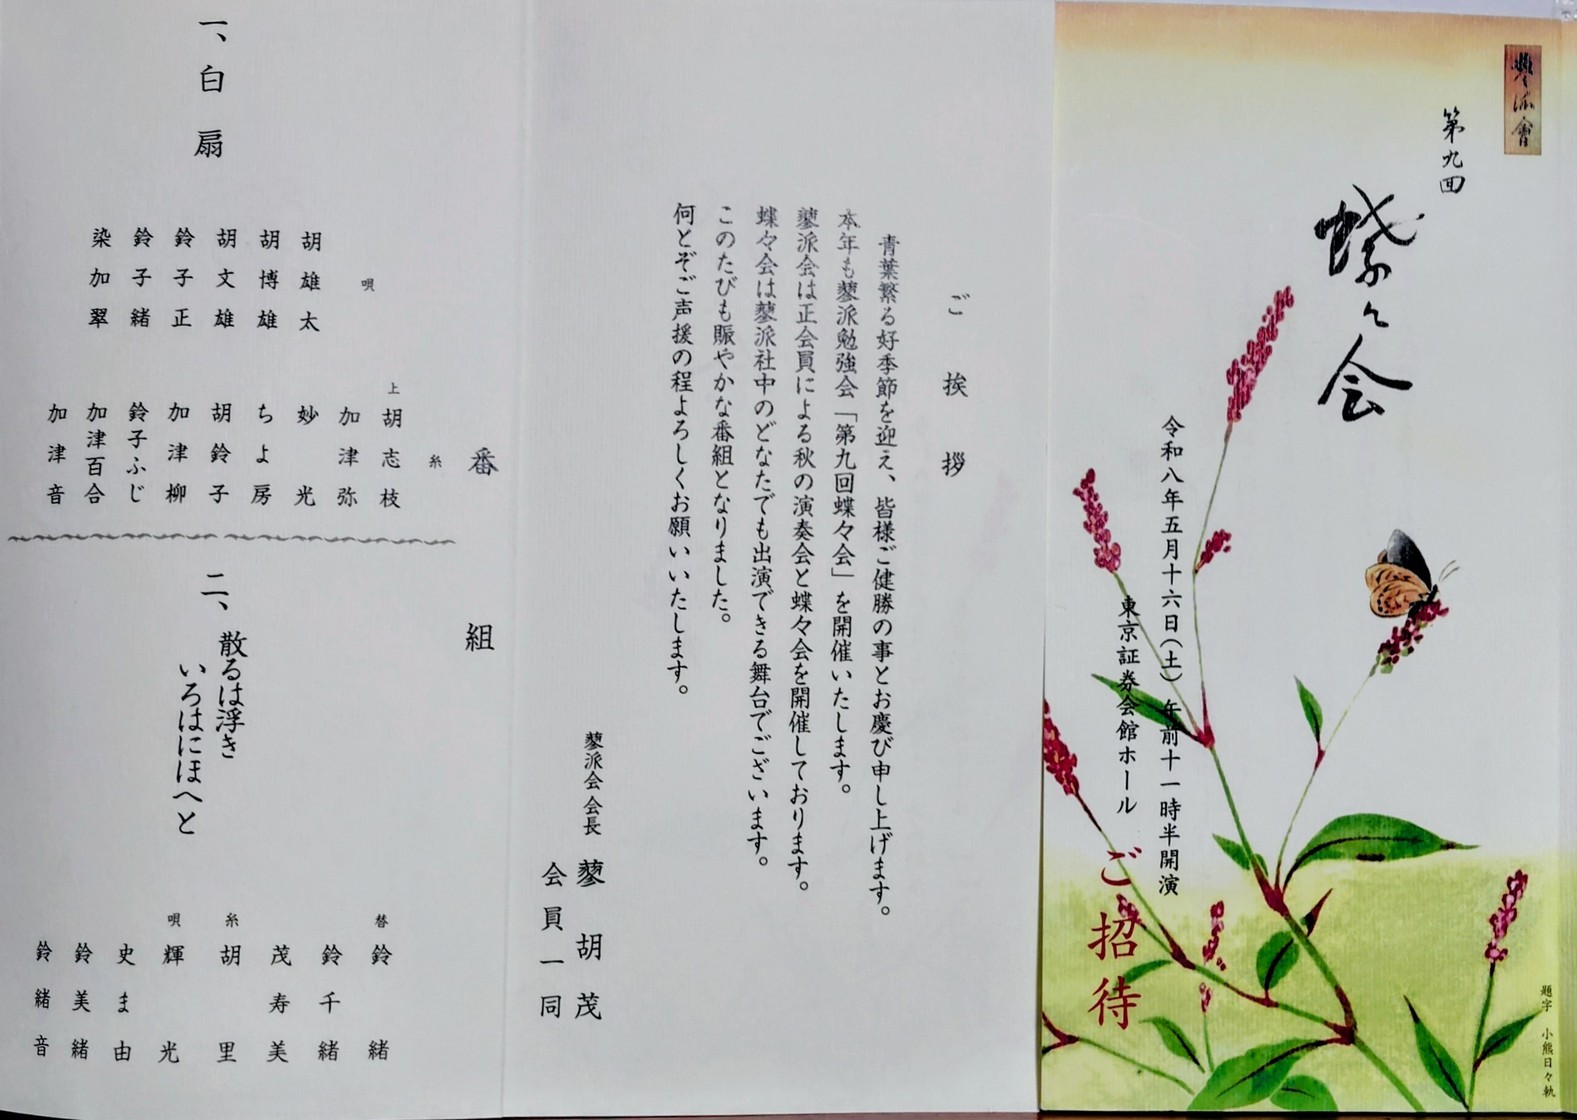 蓼派會
第九回
蝶々会
令和八年五月十六日(土) 午前十一時半開演
東京証券会館ホール
ご招待
題字 小熊日々執
ご挨拶
青葉繁る好季節を迎え、皆様ご健勝の事とお慶び申し上げます。
本年も蓼派勉強会「第九回蝶々会」を開催いたします。
蓼派会は正会員による秋の演奏会と蝶々会を開催しております。
蝶々会は蓼派社中のどなたでも出演できる舞台でございます。
このたびも賑やかな番組となりました。
何とぞご声援の程よろしくお願いいたします。
蓼派会会長 蓼胡茂
会員一同
番組
一、白扇
唄
胡雄太
胡博雄
胡文雄
鈴子正
鈴子緒
染加翠
糸
上 胡志枝
加津弥
妙光
ちよ房
胡鈴子
加津柳
鈴子ふじ
加津百合
加津音
二、散るは浮き
いろはにほへと
替 鈴緒
鈴千緒
茂寿美
糸 胡里
唄 輝光
史ま由
鈴美緒
鈴緒音